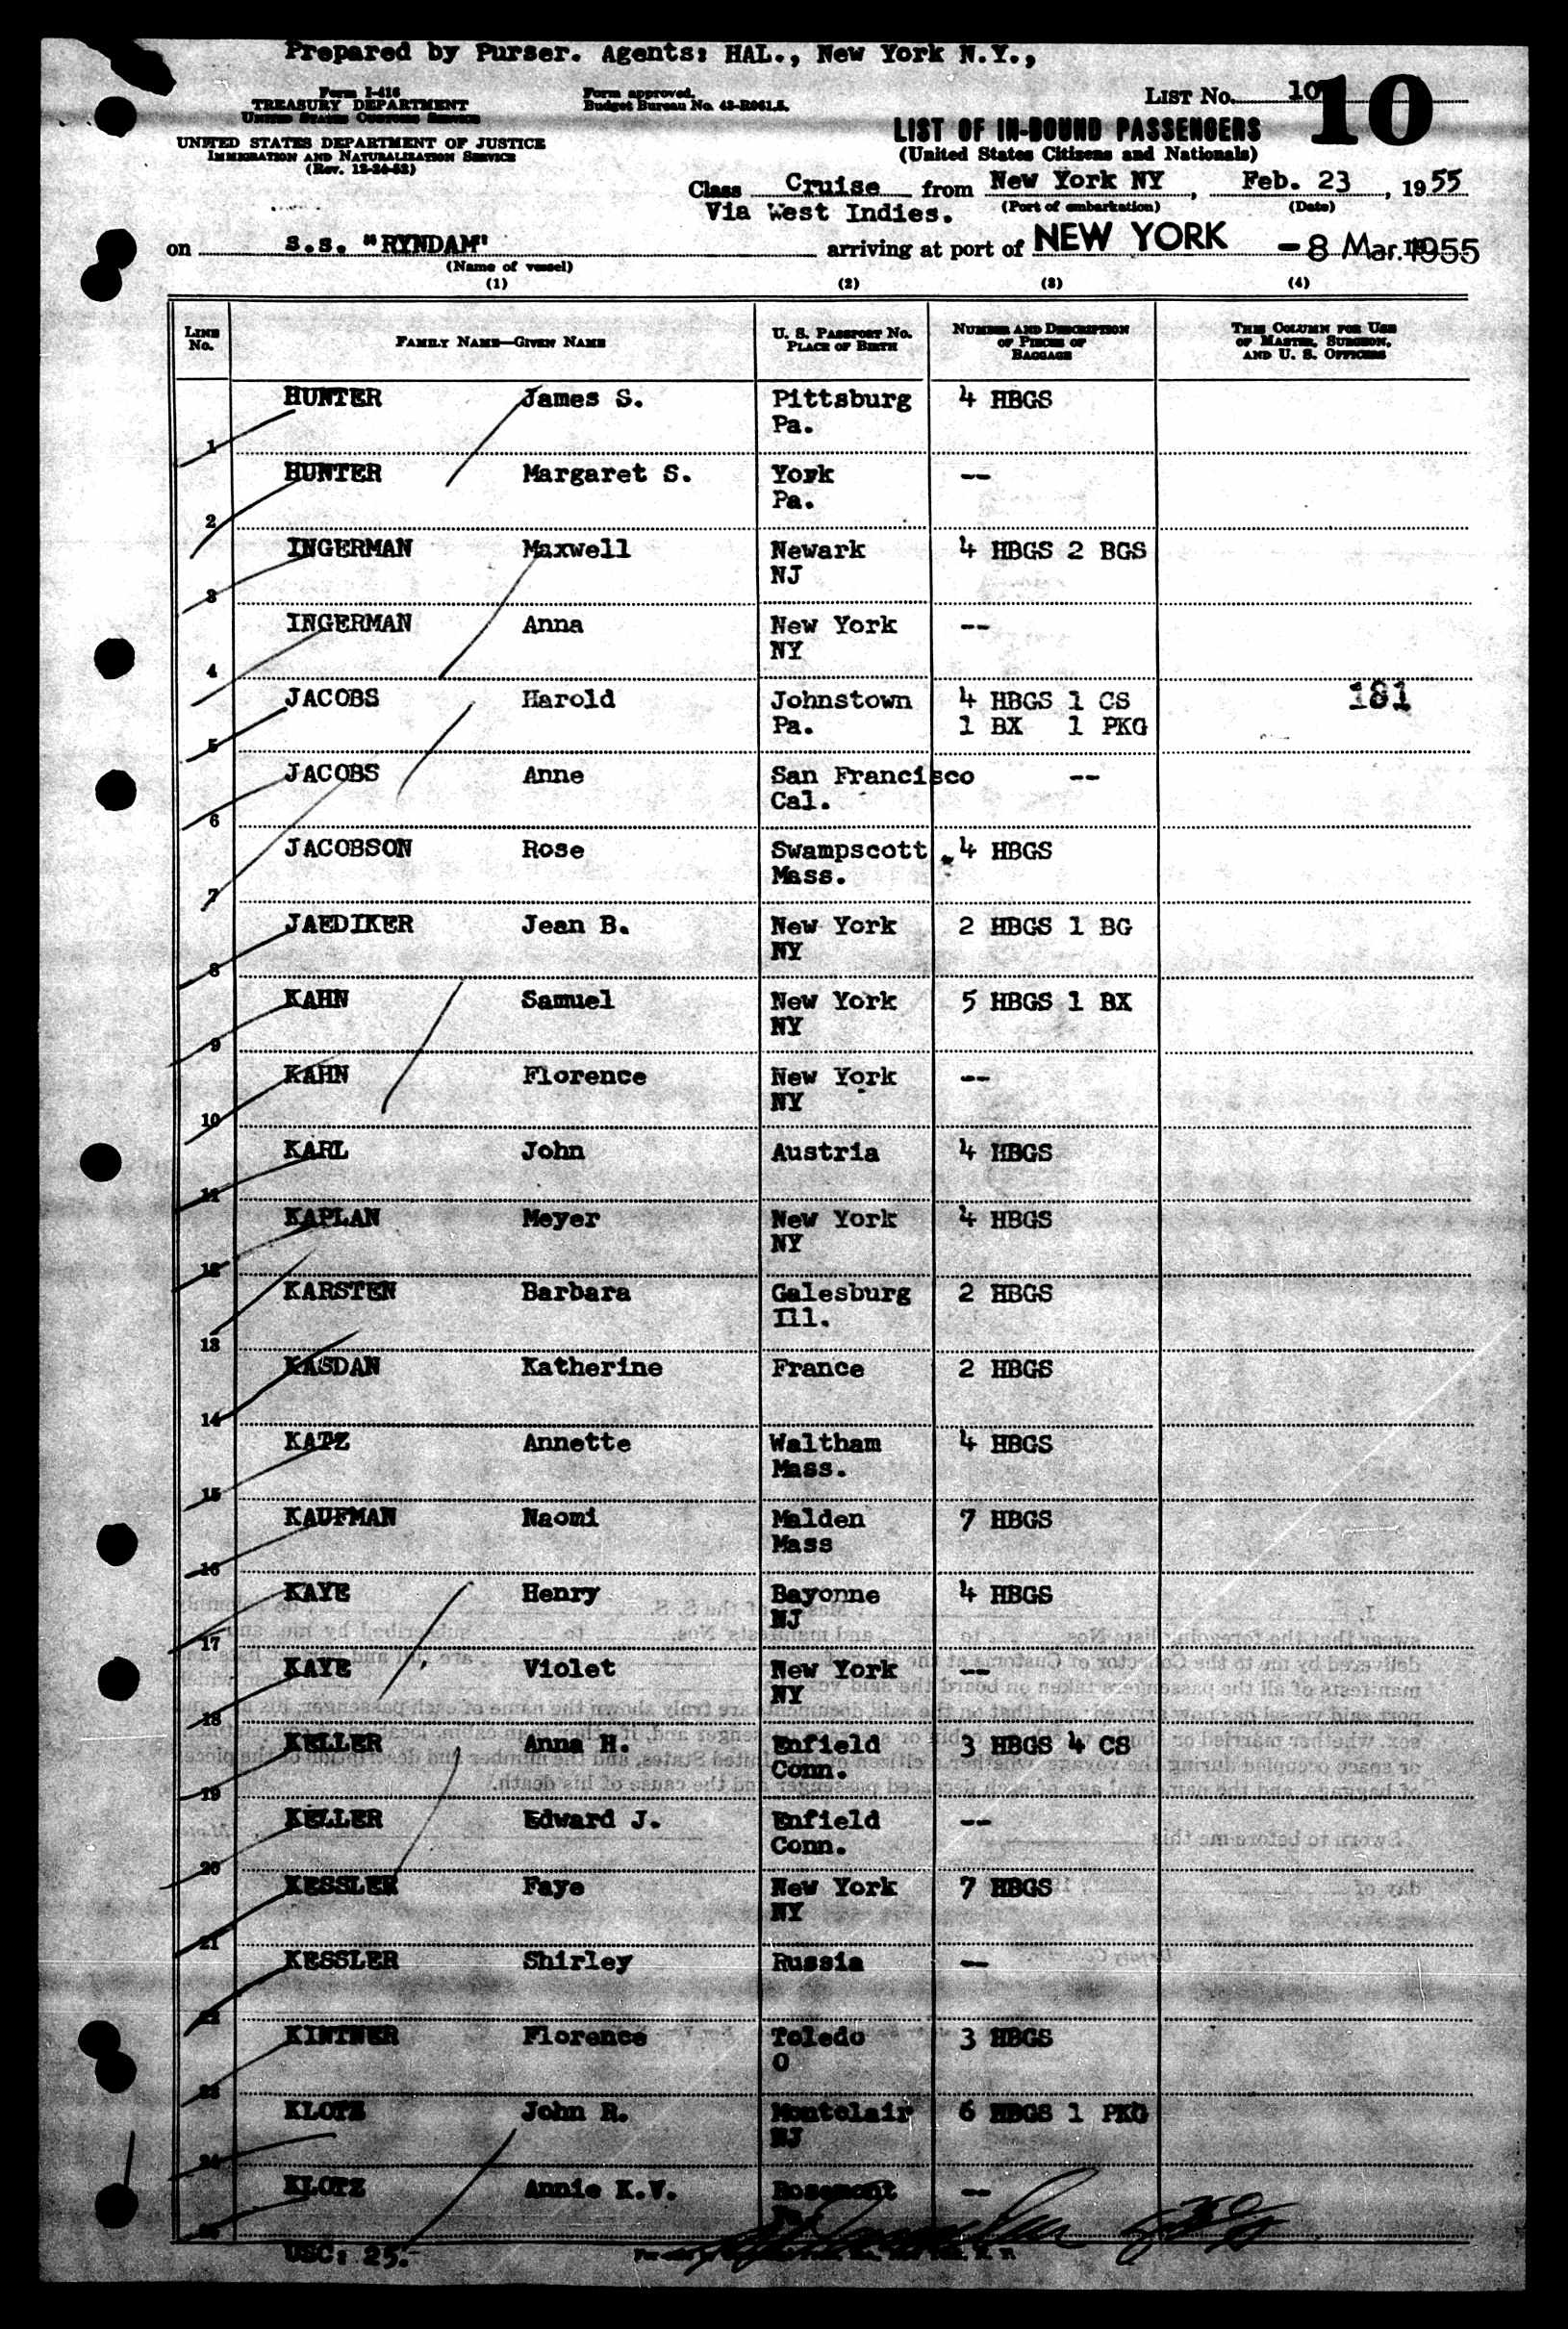 Prepared by Purser. Agents: HAL., New York N.Y.,
Form I-416
TREASURY DEPARTMENT
UNITED STATES CUSTOMS SERVICE
UNITED STATES DEPARTMENT OF JUSTICE
IMMIGRATION AND NATURALIZATION SERVICE
(Rev. 12-24-52)
Form approved.
Budget Bureau No. 43-R061.5.
LIST No. 10
10
LIST OF IN-BOUND PASSENGERS
(United States Citizens and Nationals)
Class Cruise from New York NY, Feb. 23, 1955
(Port of embarkation) (Date)
Via West Indies.
on s.s. "RYNDAM" arriving at port of NEW YORK -8 Mar. 1955
(Name of vessel)
(1) (2) (3) (4)
LINE No. FAMILY NAME—GIVEN NAME U. S. PASSPORT No. PLACE OF BIRTH NUMBER AND DESCRIPTION OF PIECES OF BAGGAGE THIS COLUMN FOR USE OF MASTER, SURGEON, AND U. S. OFFICERS
1 HUNTER James S. Pittsburg Pa. 4 HBGS
2 HUNTER Margaret S. York Pa. --
3 INGERMAN Maxwell Newark NJ 4 HBGS 2 BGS
4 INGERMAN Anna New York NY --
5 JACOBS Harold Johnstown Pa. 4 HBGS 1 CS 1 BX 1 PKG 181
6 JACOBS Anne San Francisco Cal. --
7 JACOBSON Rose Swampscott Mass. 4 HBGS
8 JAEDIKER Jean B. New York NY 2 HBGS 1 BG
9 KAHN Samuel New York NY 5 HBGS 1 BX
10 KAHN Florence New York NY --
11 KARL John Austria 4 HBGS
12 KAPLAN Meyer New York NY 4 HBGS
13 KARSTEN Barbara Galesburg Ill. 2 HBGS
14 KASDAN Katherine France 2 HBGS
15 KATZ Annette Waltham Mass. 4 HBGS
16 KAUFMAN Naomi Malden Mass 7 HBGS
17 KAYE Henry Bayonne NJ 4 HBGS
18 KAYE Violet New York NY --
19 KELLER Anna H. Enfield Conn. 3 HBGS 4 CS
20 KELLER Edward J. Enfield Conn. --
21 KESSLER Faye New York NY 7 HBGS
22 KESSLER Shirley Russia --
23 KINTNER Florence Toledo O 3 HBGS
24 KLOTZ John R. Montclair NJ 6 HBGS 1 PKG
25 KLOTZ Annie K.V. Rosemont Pa. --
USC: 25.-